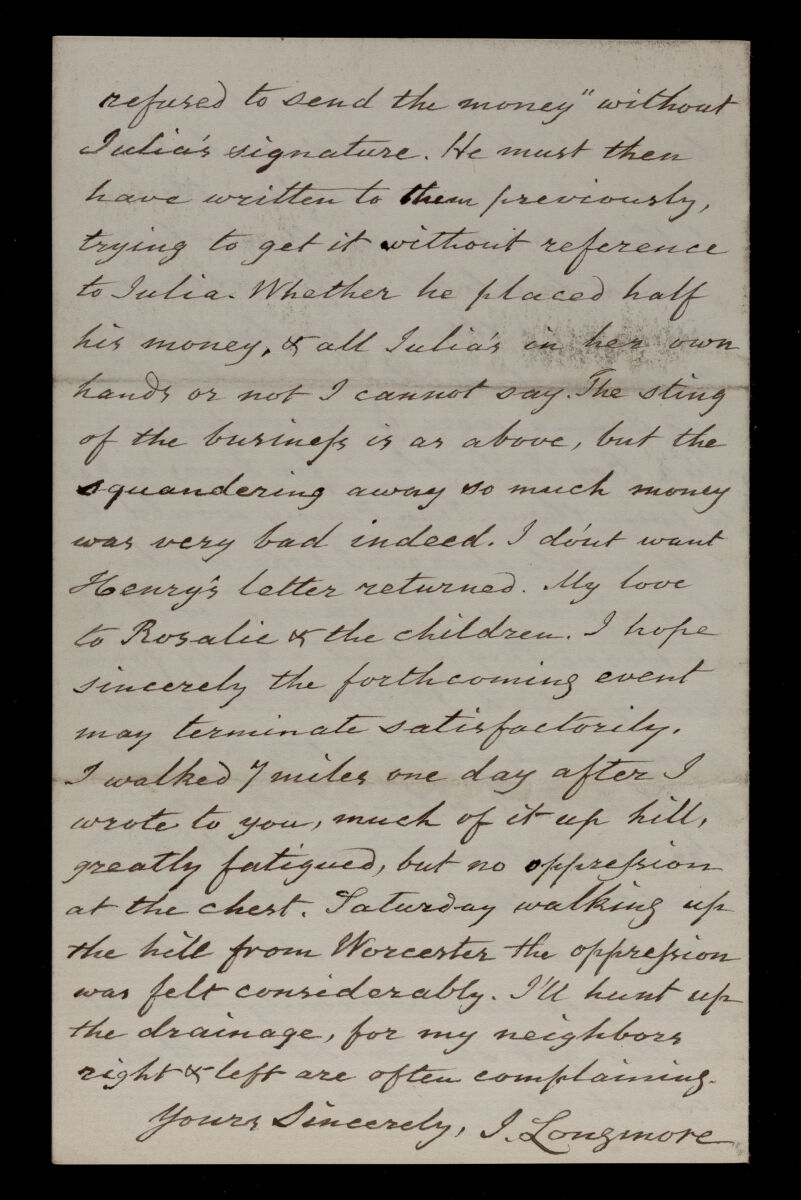 refused to send the money" without
Julia's signature. He must then
have written to them previously,
trying to get it without reference
to Julia. Whether he placed half
his money, & all Julia's in her own
hands or not I cannot say. The sting
of the busineſs is as above, but the
squandering away so much money
was very bad indeed. I do'nt want
Henry's letter returned. My love
to Rosalie & the children. I hope
sincerely the forthcoming event
may terminate satisfactorily.
I walked 7 miles one day after I
wrote to you, much of it up hill,
greatly fatigued, but no oppreſsion
at the chest. Saturday walking up
the hill from Worcester the oppreſsion
was felt considerably. I'll hunt up
the drainage, for my neighbors
right & left are often complaining.
Yours Sincerely, J. Longmore